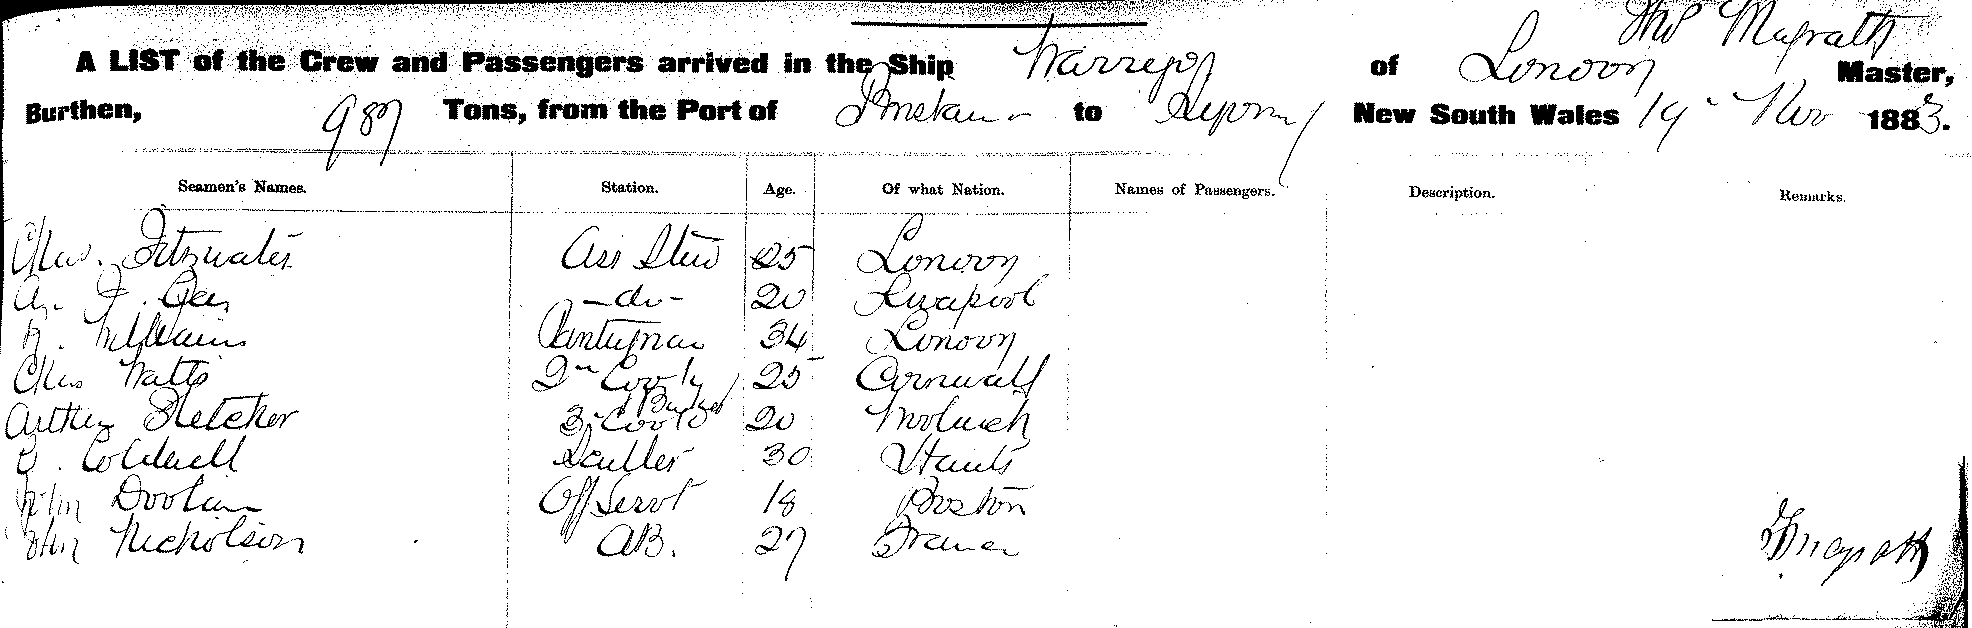 Thos Magrath
A LIST of the Crew and Passengers arrived in the Ship Warrego of London Master,
Burthen, 987 Tons, from the Port of to Sydney New South Wales 19 Nov 1883.
Seamen's Names. Station. Age. Of what Nation. Names of Passengers. Description. Remarks.
Chas. Fitzwater Ass Stew 25 London
20 Liverpool
Williams Pantryman 34 London
Chas Watts 2nd Cook / Baker 25 Cornwall
Arthur Fletcher 3rd Cook 20 Woolwich
Coldwell Sculler 30 Hants
John Doolan Off Servt 18 Boston
John Nicholson AB. 27 France
T Magrath